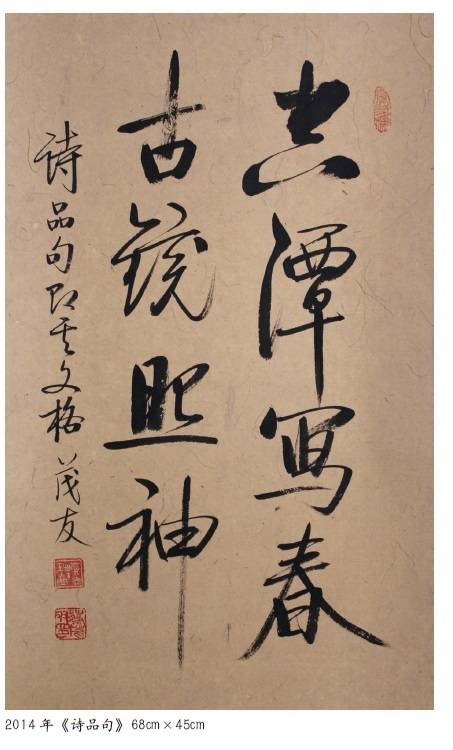 空潭写春
古鏡照神
诗品句即其文格 茂友
2014年《诗品句》68cm×45cm